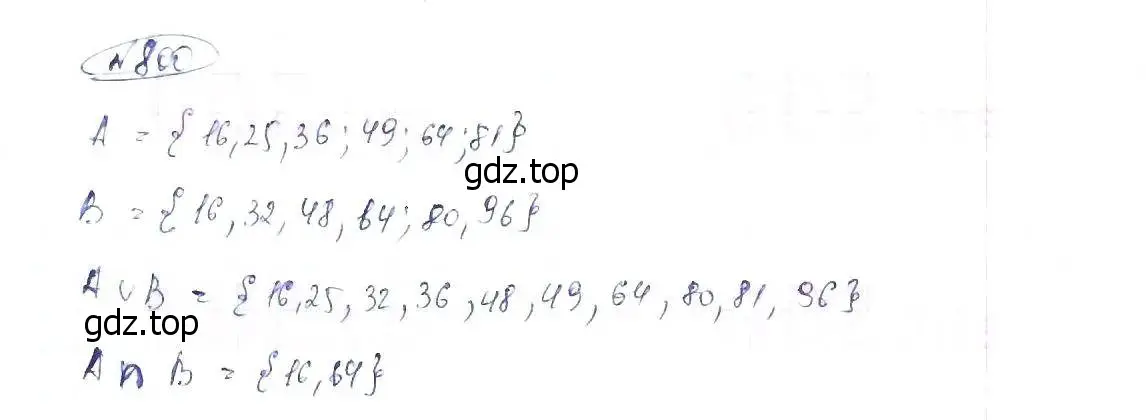 № 800
A = {16, 25, 36; 49; 64; 81}
gdz.top
B = {16, 32, 48, 64; 80, 96}
A ∪ B = {16, 25, 32, 36, 48, 49, 64, 80, 81, 96}
gdz.top
A ∩ B = {16, 64}